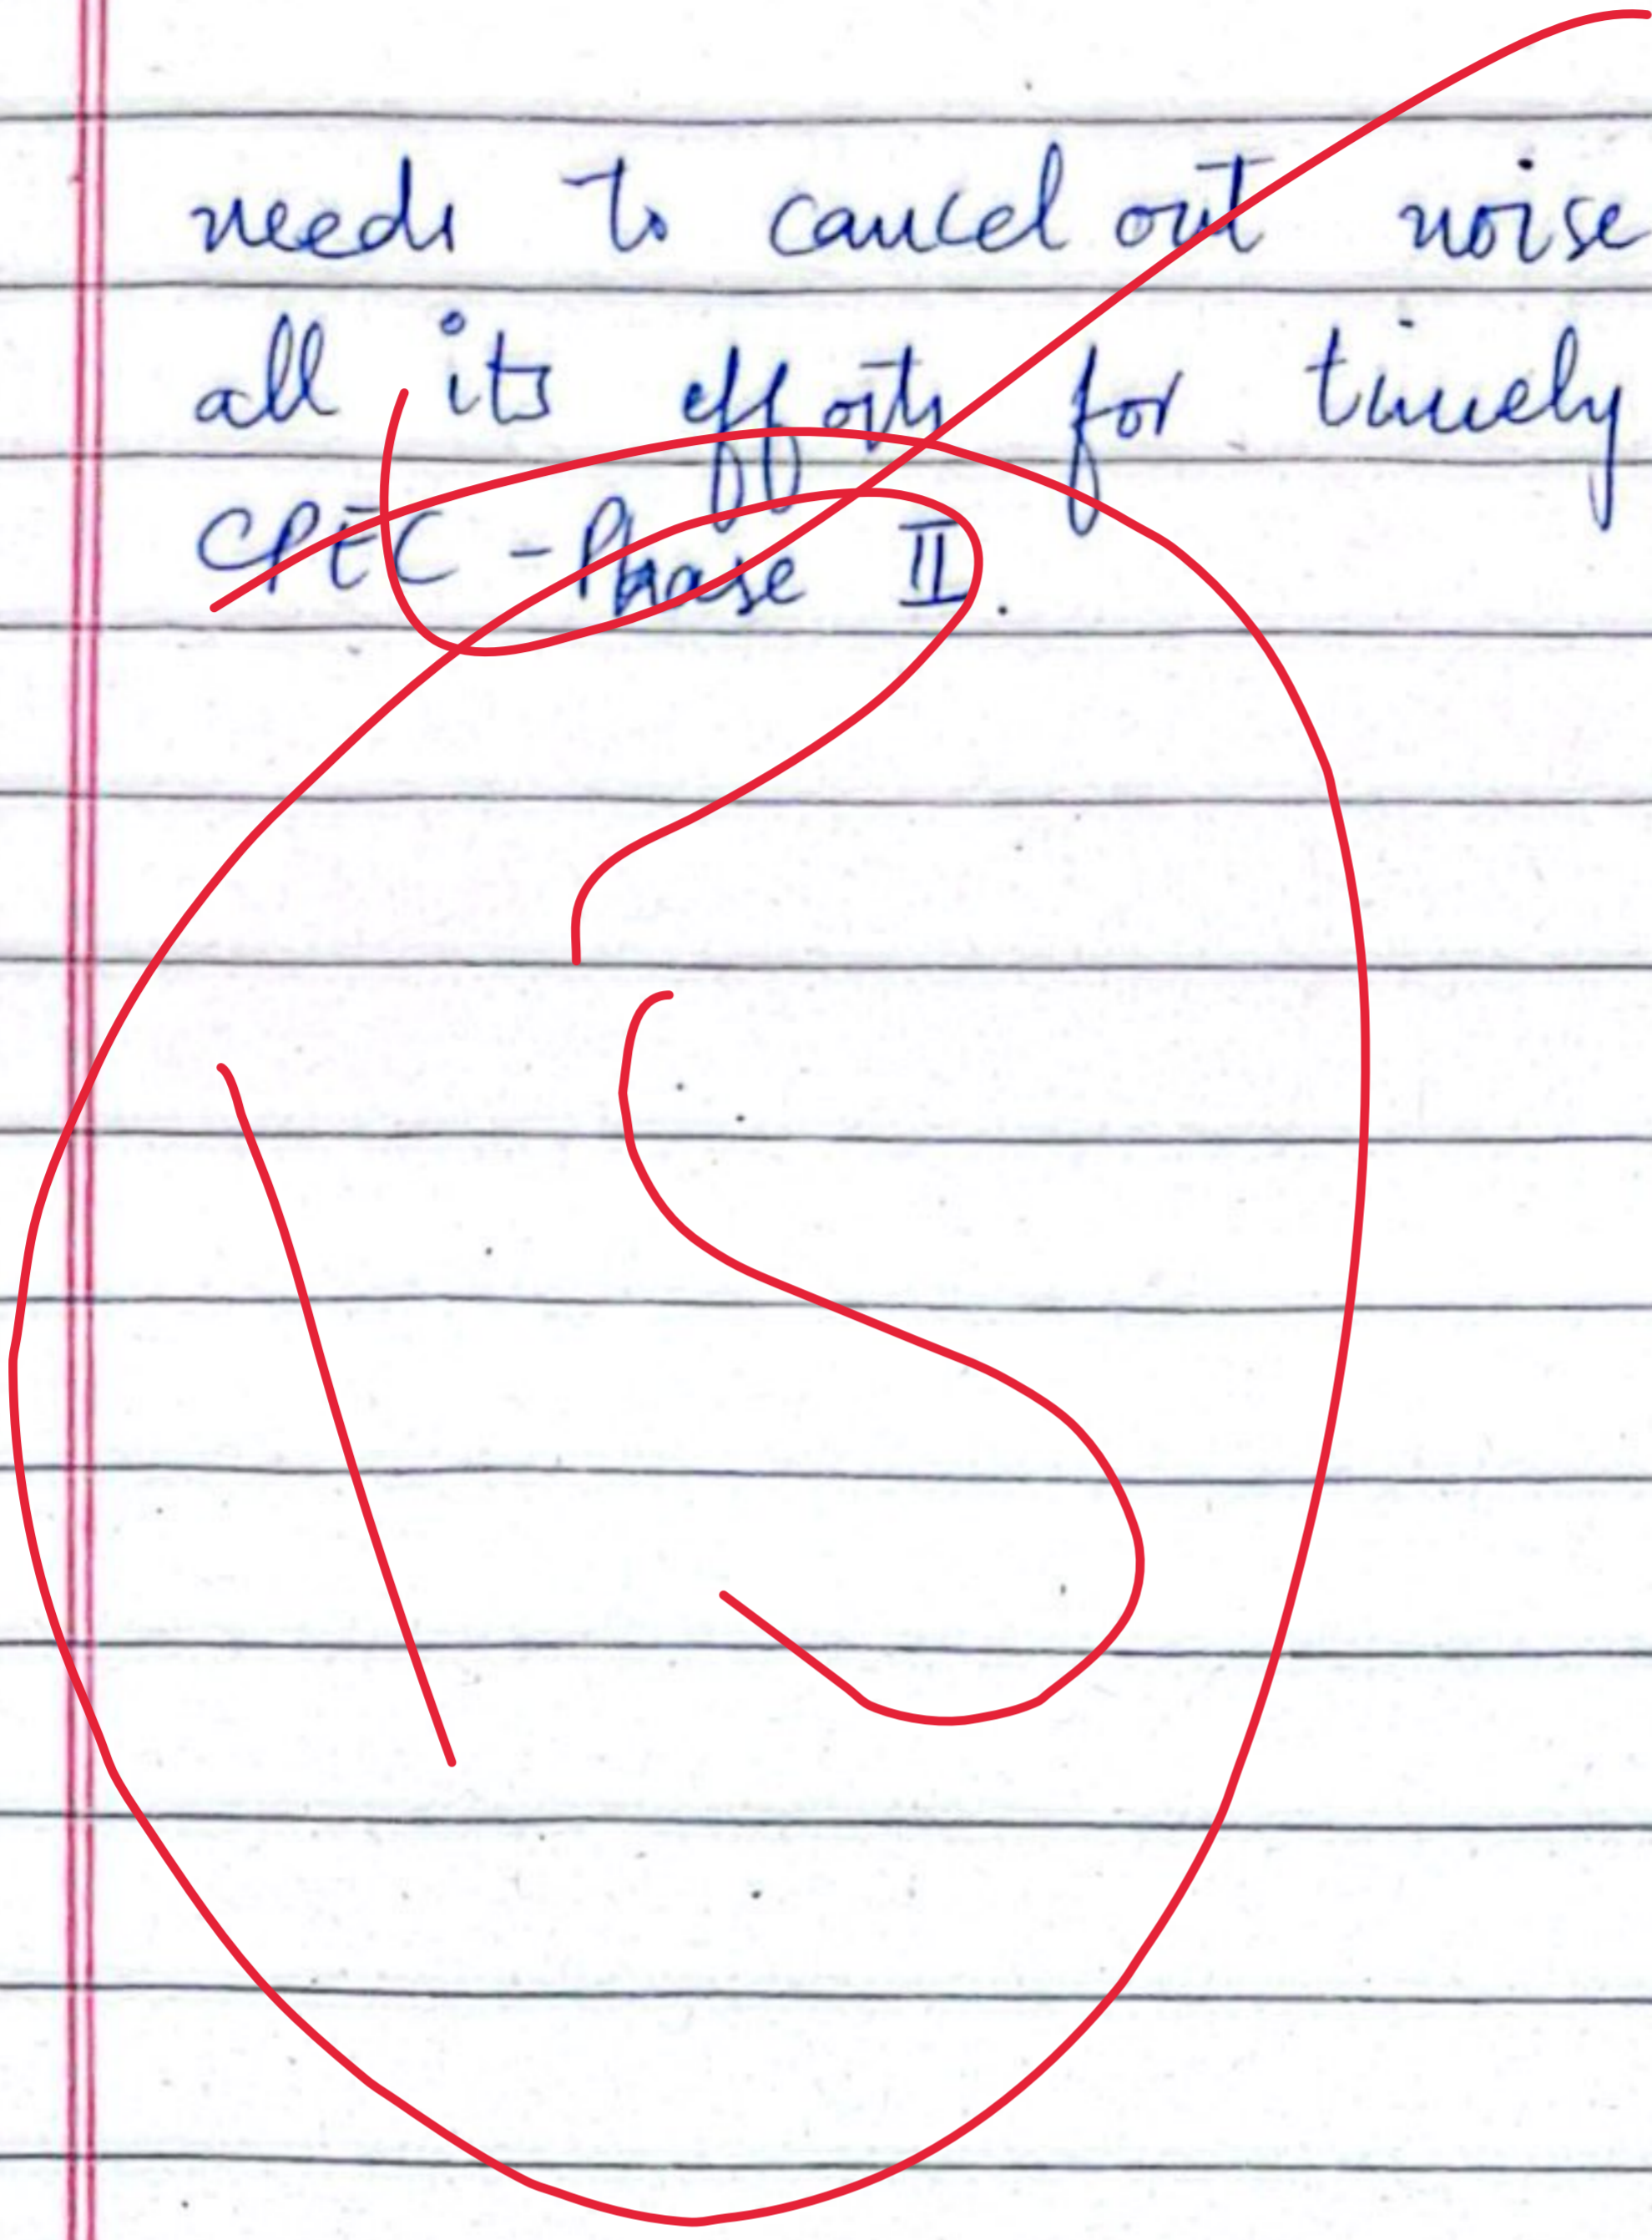 needs to cancel out noise
all its efforts for timely
CPEC - Phase II.
15